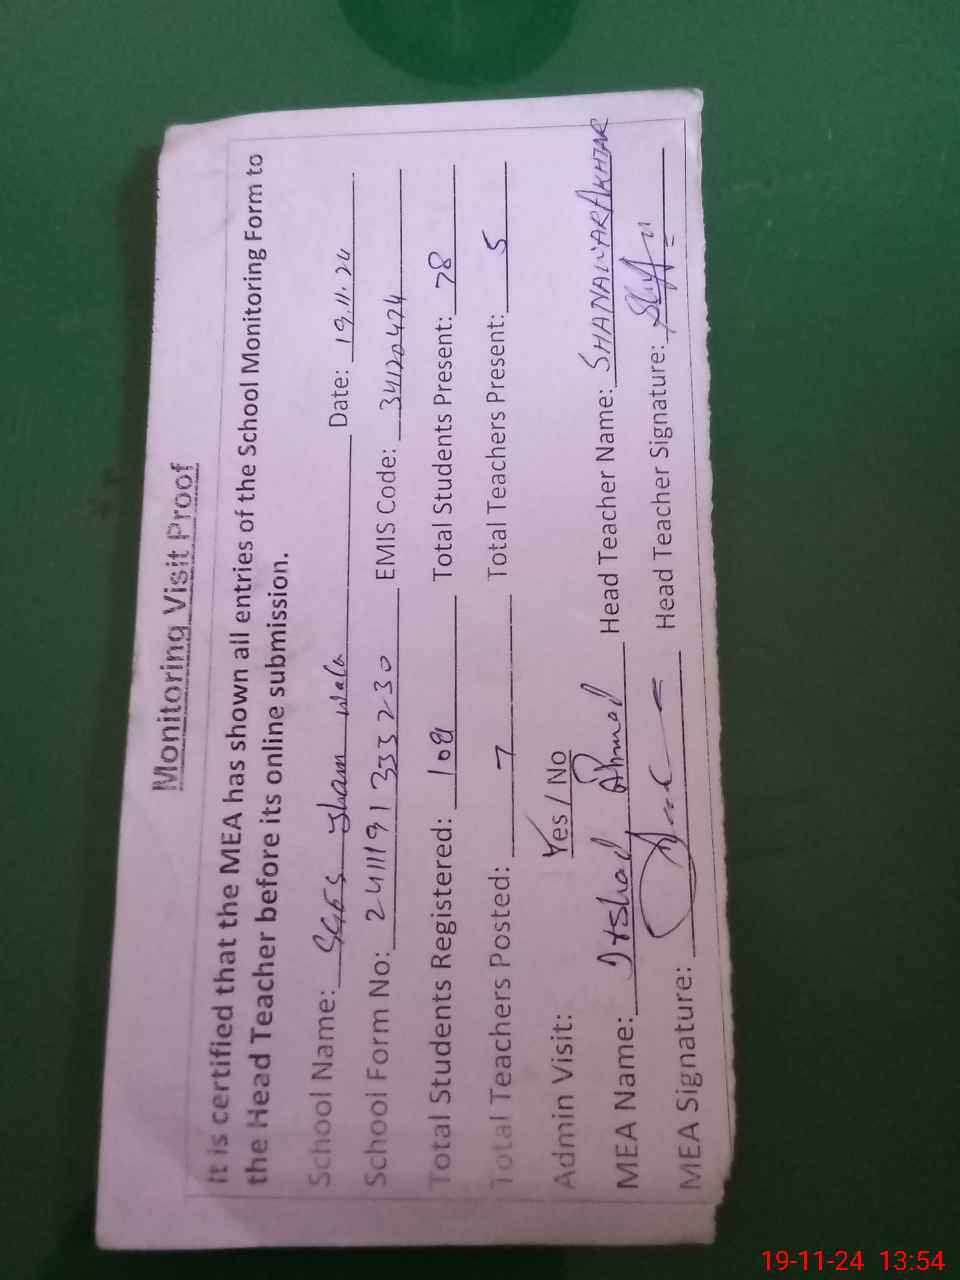 Monitoring Visit Proof
It is certified that the MEA has shown all entries of the School Monitoring Form to
the Head Teacher before its online submission.
School Name: Sham wala Date: 19.11.24
School Form No: 241119133 3230 EMIS Code: 34120424
Total Students Registered: 109 Total Students Present: 78
Total Teachers Posted: 7 Total Teachers Present: 5
Admin Visit: Yes / No
MEA Name: Irshad Ahmad Head Teacher Name: SHANAWAR AKHTAR
MEA Signature: Head Teacher Signature:
19-11-24 13:54